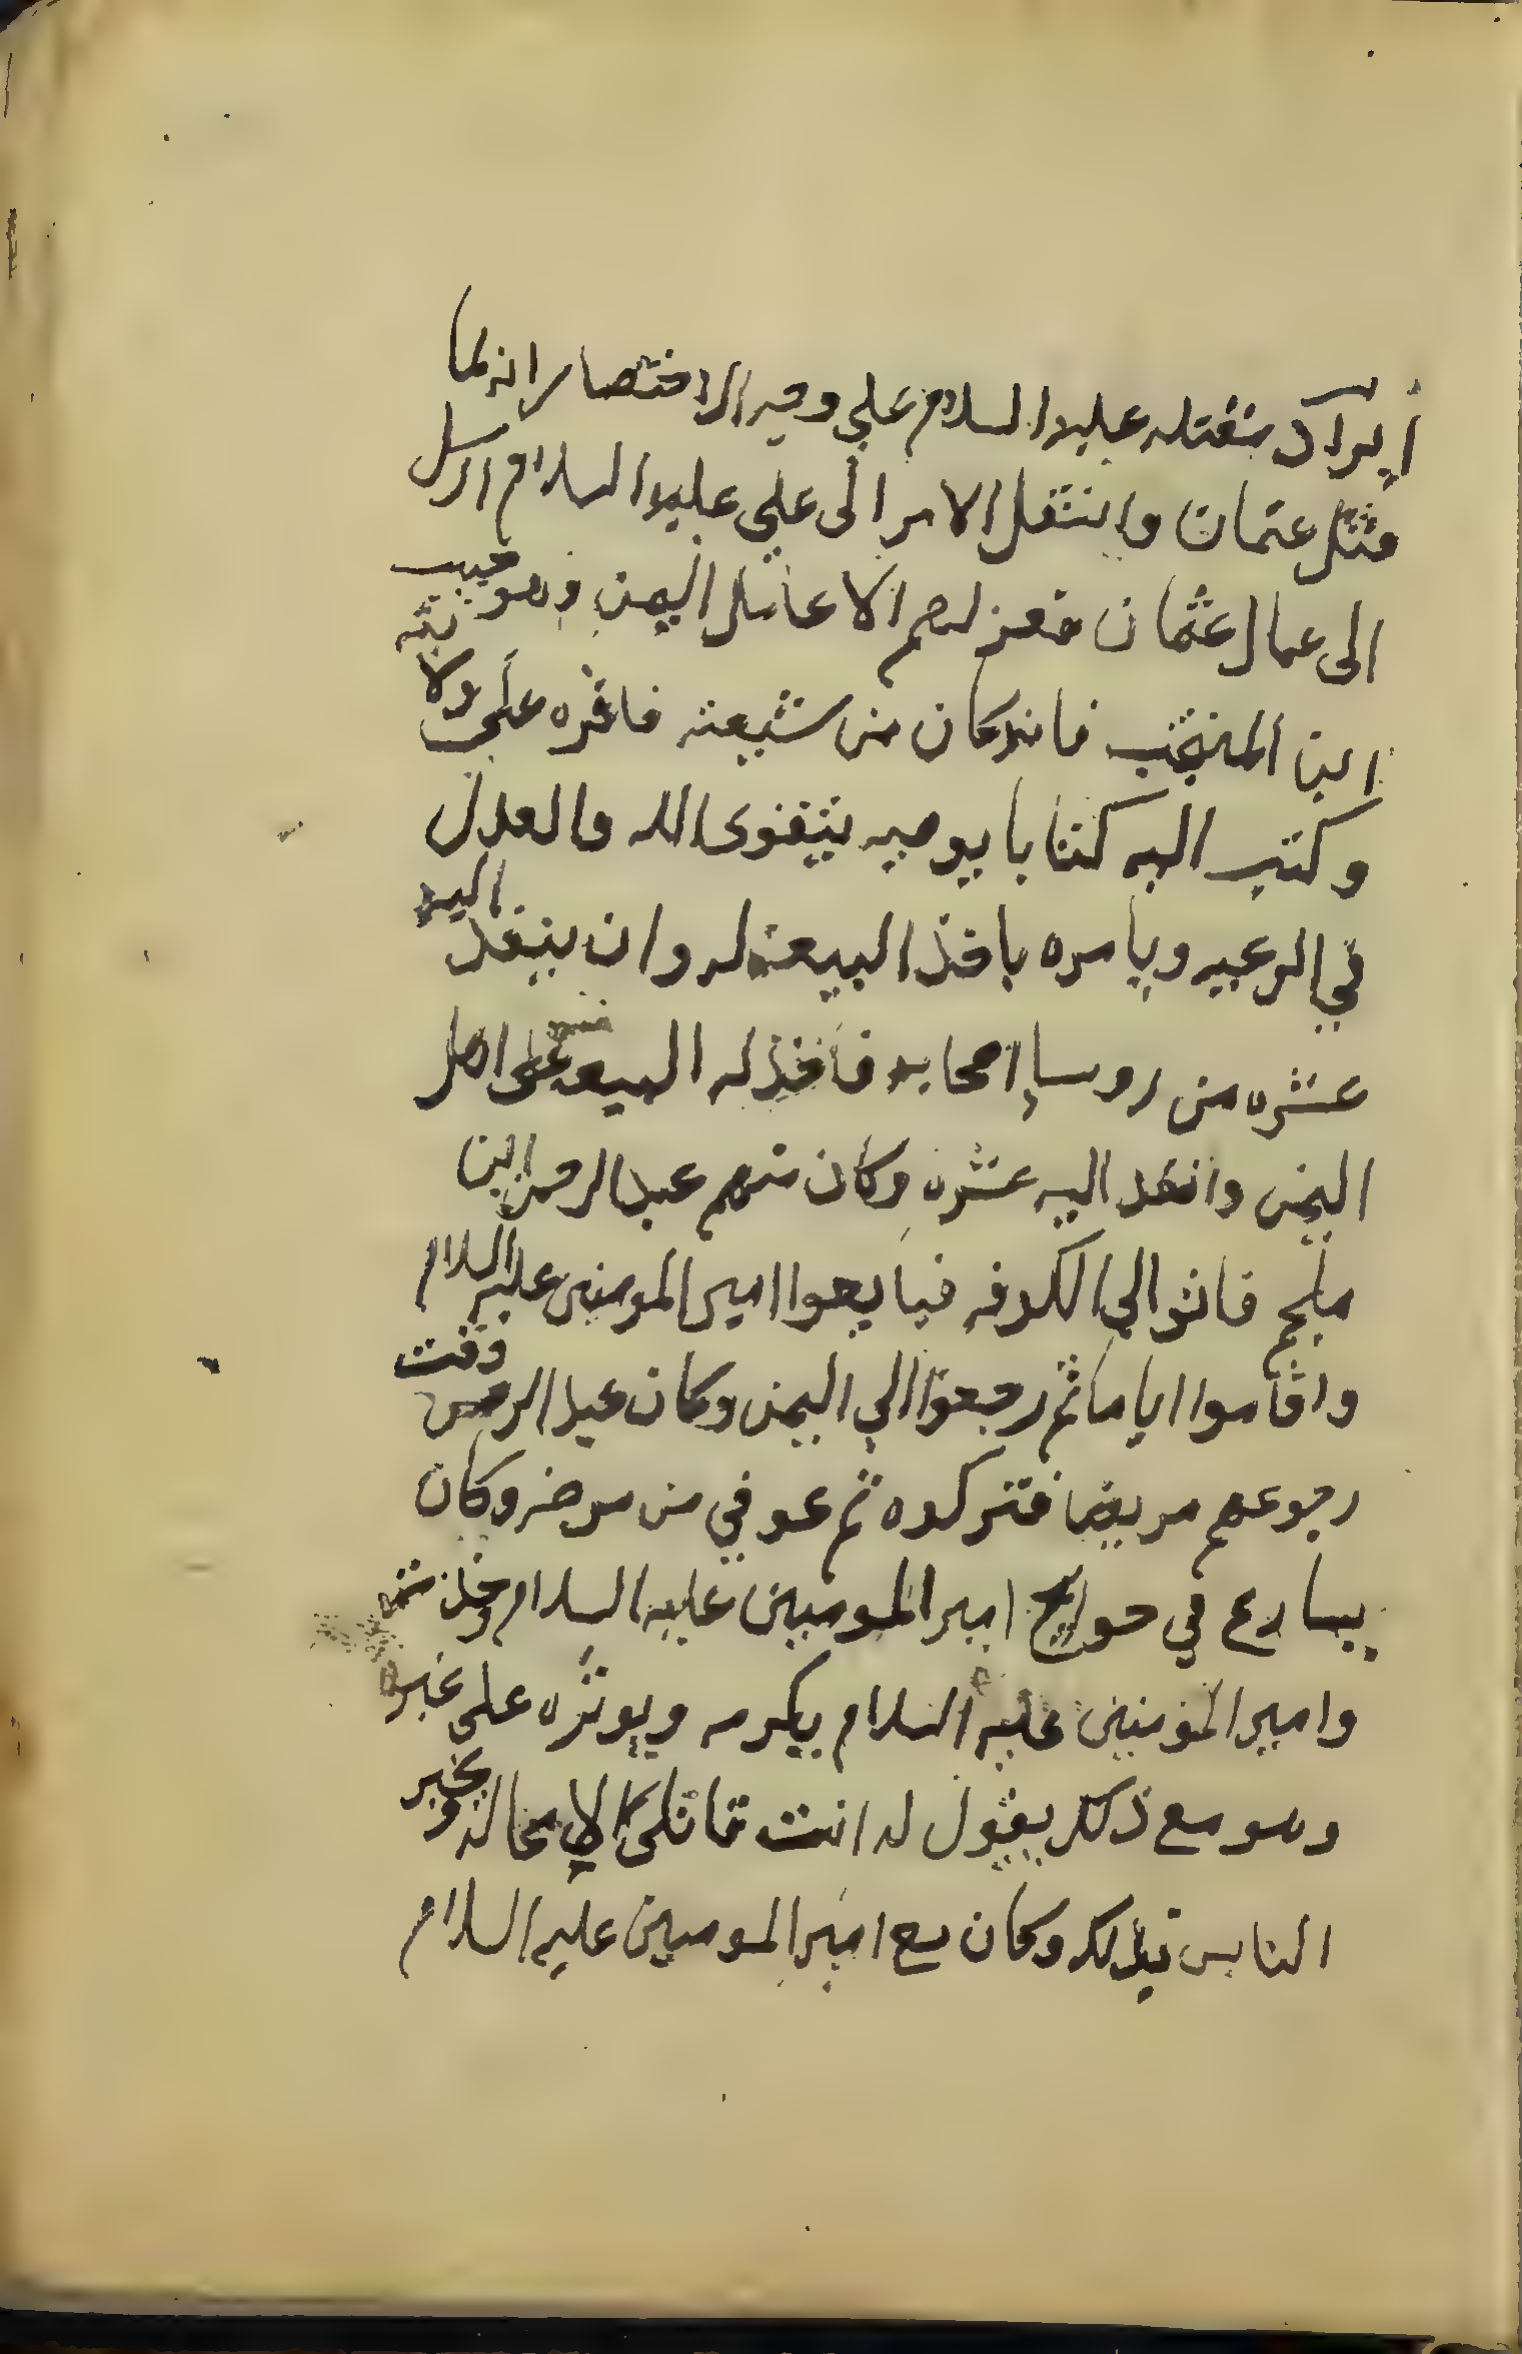 ايراد مقتله عليه السلام علي وجه الاختصار انه لما
قتل عثمان وانتقل الامر الى علي عليه السلام ارسل
الى عمال عثمان فعزلهم الا عامل اليمن وهو حبيب
ابن المنتجب فانه كان من شيعته فاقره على ولايته
وكتب اليه كتابا يوصيه بتقوى الله والعدل
في الرعيه ويامره باخذ البيعة له وان ينفذ اليه
عشره من روسا اصحابه فاخذ له البيعه على اهل
اليمن وانفذ اليه عشره وكان منهم عبدالرحمن ابن
ملجم فاتوا الي الكوفه فبايعوا امير المومنين عليه السلام
واقاموا اياما ثم رجعوا الي اليمن وكان عبد الرحمن وقت
رجوعهم مريضا فتركوه ثم عوفي من مرضه وكان
يسارع في حوايج امير المومنين عليه السلام وخدمته
وامير المؤمنين عليه السلام يكرمه ويوثره على غيره
وهو مع ذلك يقول له انت قاتلي لا محاله ويخبر
الناس بذلك وكان مع امير المومنين عليه السلام